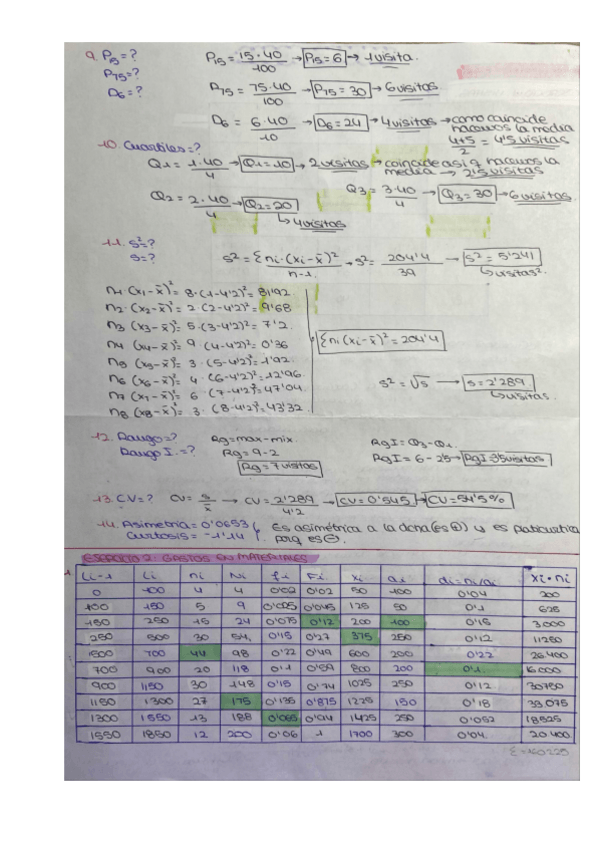 9. P15=? P15 = 15·40/100 → P15=6 → 1 visita.
P75=? P75 = 75·40/100 → P75=30 → 6 visitas
D6=? D6 = 6·40/10 → D6=24 → 4 visitas → como coincide hacemos la media 4+5/2 = 4'5 visitas
10. Cuartiles=?
Q1 = 1·40/4 → Q1=10 → 2 visitas → coincide así q hacemos la media → 2'5 visitas
Q2 = 2·40/4 → Q2=20 → 4 visitas Q3 = 3·40/4 → Q3=30 → 6 visitas.
11. S²=?
S=? S² = Σ ni·(xi-x̄)²/n-1 → S² = 204'4/39 → S² = 5'241 → visitas².
n1 (x1-x̄)² = 8·(1-4'2)² = 81'92
n2 (x2-x̄)² = 2·(2-4'2)² = 9'68
n3 (x3-x̄)² = 5·(3-4'2)² = 7'2
n4 (x4-x̄)² = 9·(4-4'2)² = 0'36 Σ ni (xi-x̄)² = 204'4
n5 (x5-x̄)² = 3·(5-4'2)² = 1'92
n6 (x6-x̄)² = 4·(6-4'2)² = 12'96 S² = √S → S=2'289 → visitas.
n7 (x7-x̄)² = 6·(7-4'2)² = 47'04
n8 (x8-x̄)² = 3·(8-4'2)² = 43'32
12. Rango=? Rg = max-mix. RgI = Q3-Q1.
Rango I.=? Rg = 9-2 RgI = 6-25 → RgI=35 visitas
Rg = 7 visitas
13. CV=? CV = S/x̄ → CV = 2'289/4'2 → CV = 0'545 → CV = 54'5%
14. Asimetría = 0'0653
Curtosis = -1'14
Es asimétrica a la dcha (es ⊕) y es platicúrtica porq es ⊖.
EJERCICIO 2. GASTOS EN MATERIALES
Li-1 Li ni Ni fi Fi xi ai di=ni/ai xi·ni
0 100 4 4 0'02 0'02 50 100 0'04 200
100 150 5 9 0'025 0'045 125 50 0'1 625
150 250 15 24 0'075 0'12 200 100 0'15 3.000
250 500 30 54 0'15 0'27 375 250 0'12 11250
500 700 44 98 0'22 0'49 600 200 0'22 26400
700 900 20 118 0'1 0'59 800 200 0'1 16000
900 1150 30 148 0'15 0'74 1025 250 0'12 30750
1150 1300 27 175 0'135 0'875 1225 150 0'18 33075
1300 1550 13 188 0'065 0'94 1425 250 0'052 18525
1550 1850 12 200 0'06 1 1700 300 0'04 20400
Σ=160225